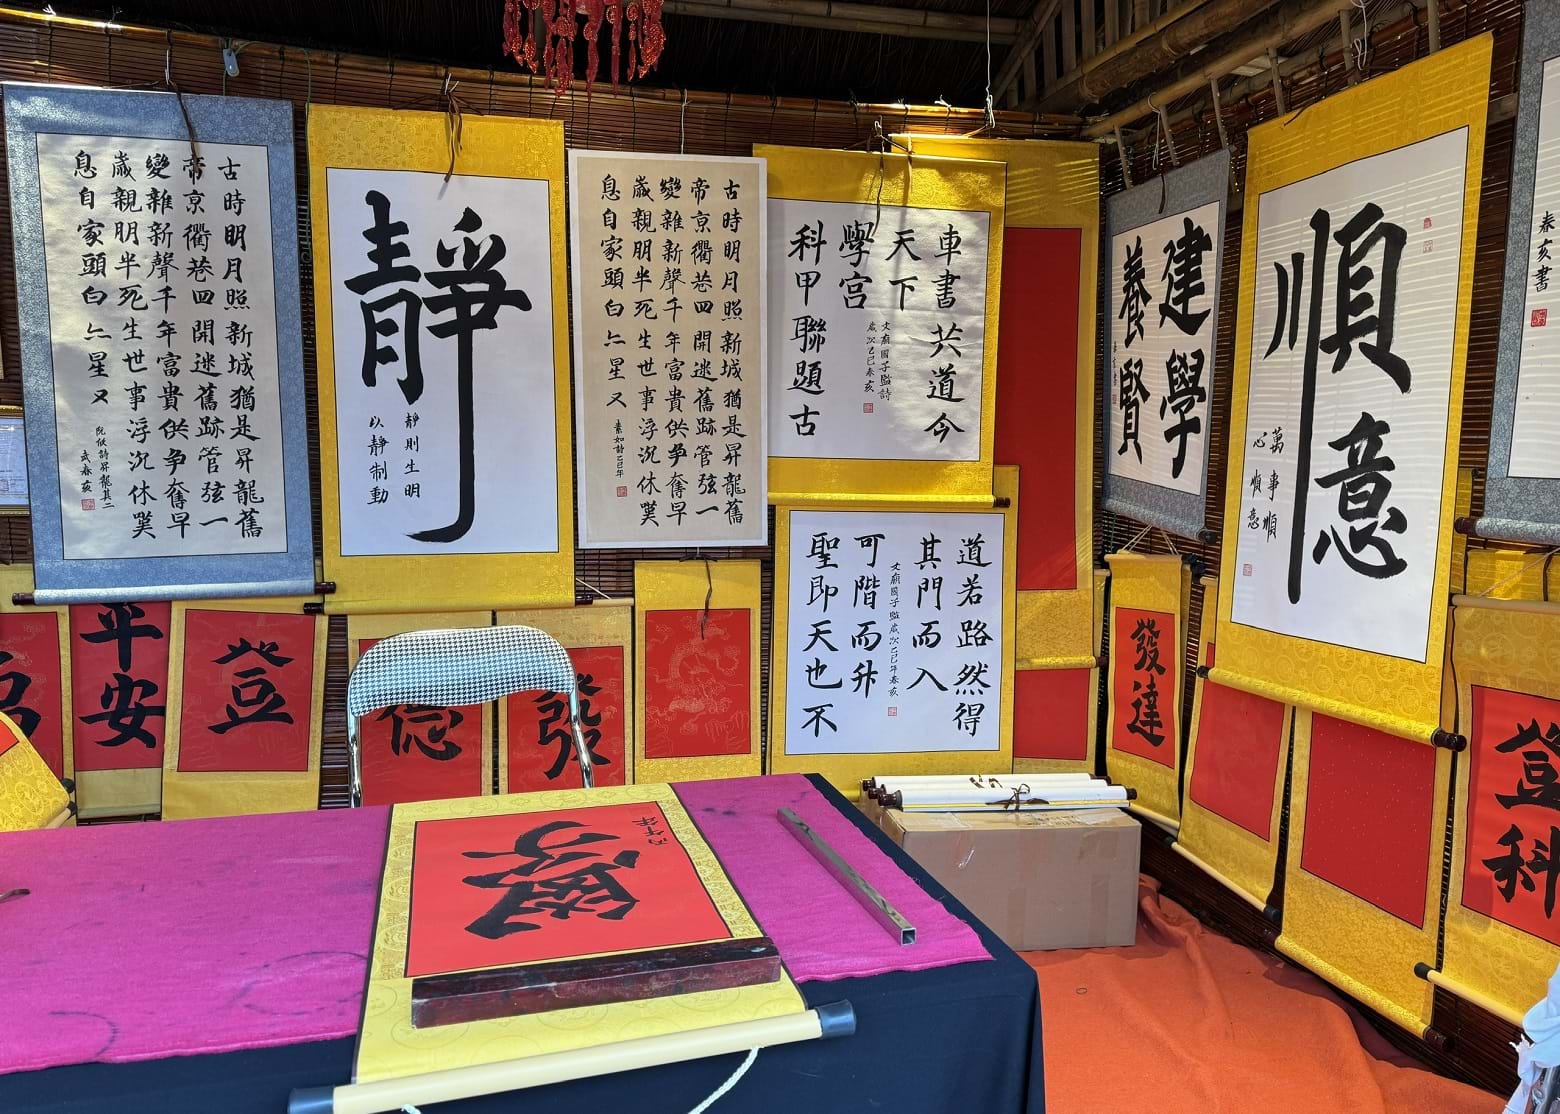 古時明月照新城猶是昇龍舊
帝京衢巷四開迷舊跡管弦一
變雜新聲千年富貴供争奪早
歲親朋半死生世事浮沉休嘆
息自家頭白亦星又
阮攸詩昇龍其二
武春亥
靜
靜則生明
以靜制動
古時明月照新城猶是昇龍舊
帝京衢巷四開迷舊跡管弦一
變雜新聲千年富貴供争奪早
歲親朋半死生世事浮沉休嘆
息自家頭白亦星又
素如詩乙巳年
車書共道今
天下
文廟國子監詩
歲次乙巳春亥
學宮
科甲聯題古
道若路然得
其門而入
文廟國子監歲次乙巳年春亥
可階而升
聖即天也不
建學
養賢
順意
萬事順
心順意
春亥書
平安
登
德
發
發達
登科
丙午年